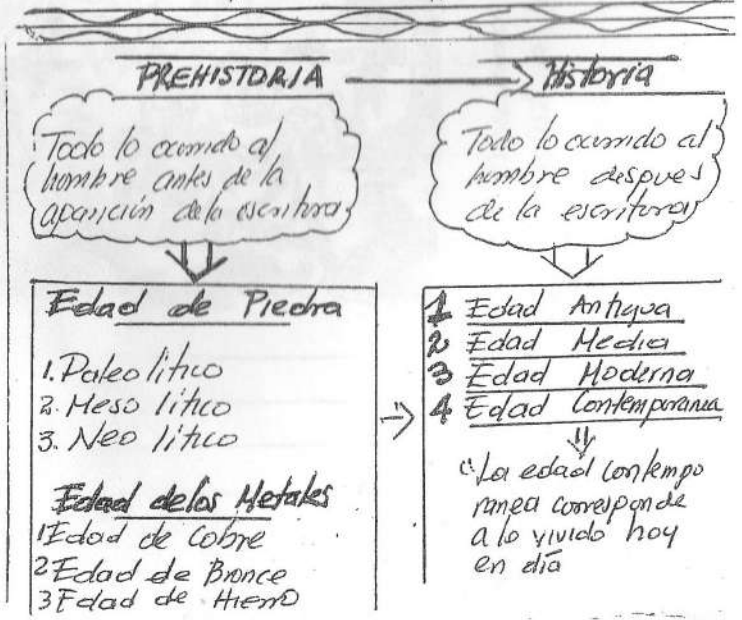 PREHISTORIA
Todo lo ocurrido al
hombre antes de la
aparición dela escritura
Edad de Piedra
1. Paleolítico
2. Mesolítico
3. Neolítico
Edad delos Metales
1 Edad de Cobre
2 Edad de Bronce
3 Edad de Hierro
Historia
Todo lo ocurrido al
hombre despues
de la escritura
1 Edad Antigua
2 Edad Media
3 Edad Moderna
4 Edad Contemporanea
La edad contempo
ranea corresponde
a lo vivido hoy
en día